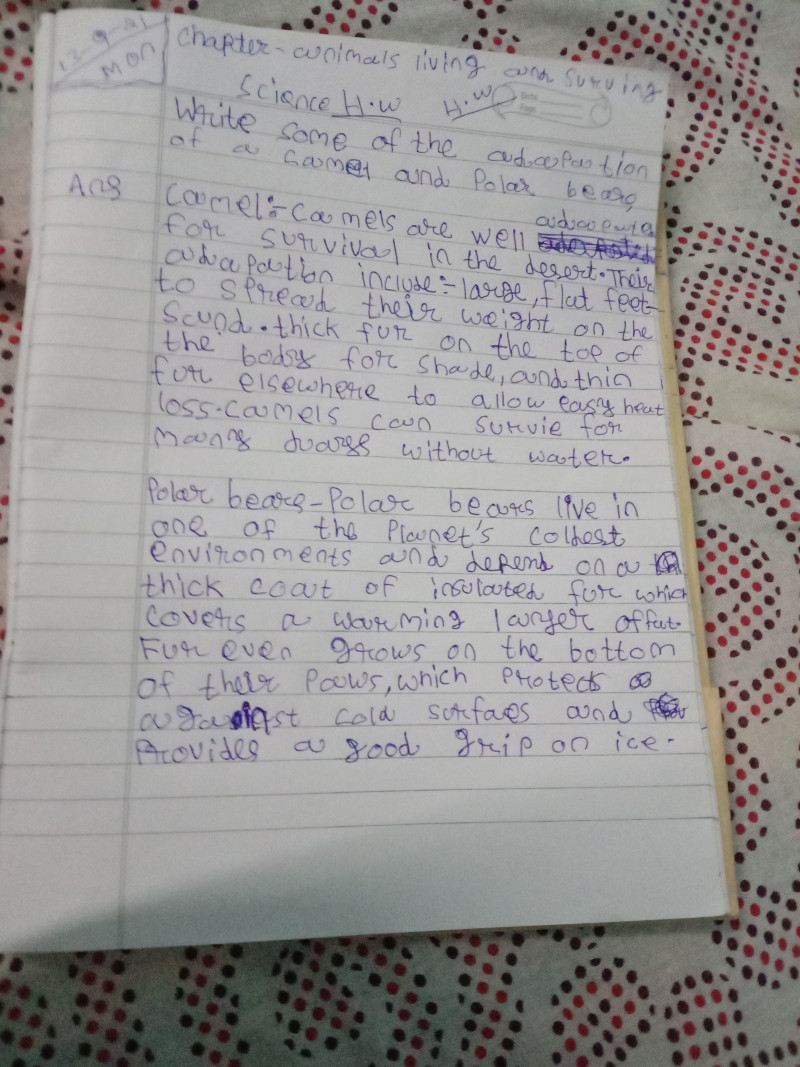 13-9-21
MON
Chapter-animals living and surving
Science H.W H.W
Date
Page
Write some of the adaapation
of a camel and Polar bears
Ans Camel:-Camels are well
for survival in the desert. Their
adapation include:- large, flat feet-
to spread their weight on the
Sand. thick fur on the top of
the body for shade, and thin
fur elsewhere to allow easy heat
loss-camels can survie for
many days without water.
Polar bears-Polar bears live in
one of the Planet's coldest
environments and depend on a
thick coat of insulated fur which
covers a warming laryer of fat.
Fur even grows on the bottom
of their Paws, which Protects
against cold surfaes and
Provides a good grip on ice.